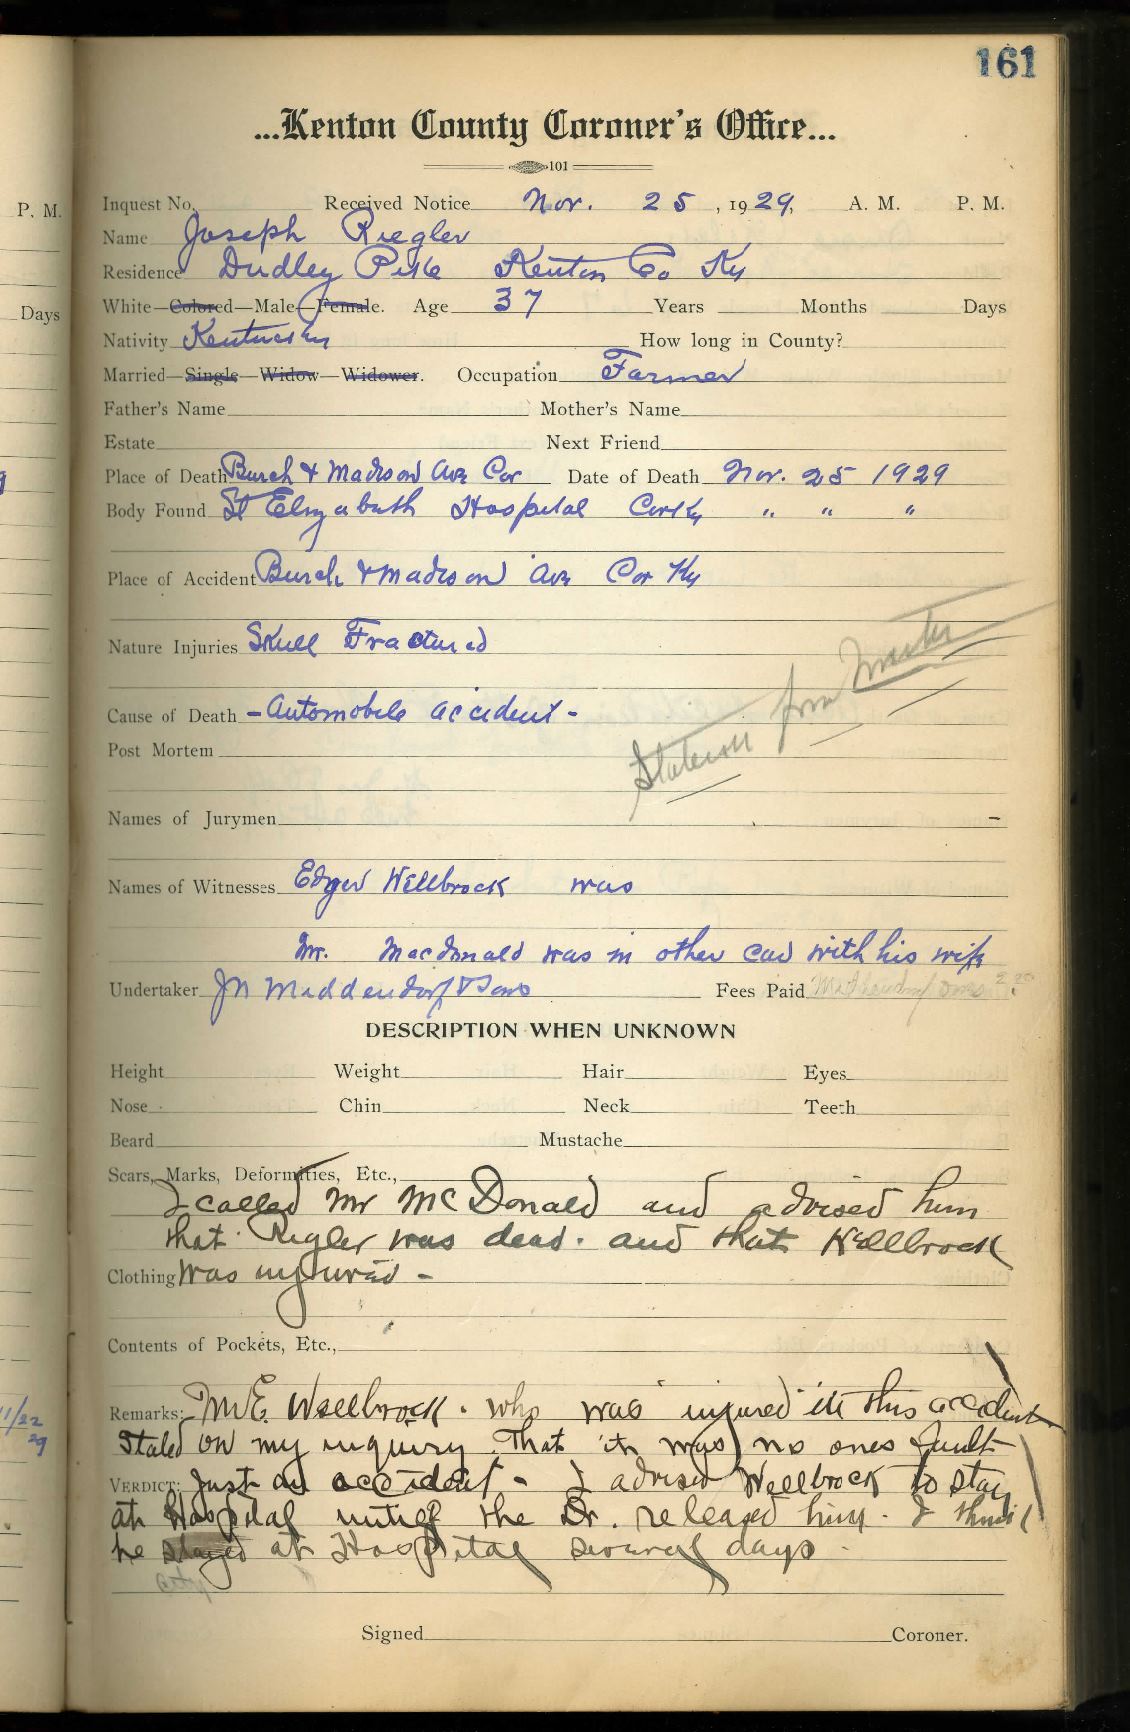 161
...Kenton County Coroner's Office...
101
Inquest No. Received Notice Nov. 25, 1929, A. M. P. M.
Name Joseph Riegler
Residence Dudley Pike Kenton Co Ky
White—Colored—Male—Female. Age 37 Years Months Days
Nativity Kentucky How long in County?
Married—Single—Widow—Widower. Occupation Farmer
Father's Name Mother's Name
Estate Next Friend
Place of Death Burch & Madison Ave Cov Date of Death Nov. 25 1929
Body Found St Elizabeth Hospital Cov Ky " " "
Place of Accident Burch & Madison Ave Cov Ky
Nature Injuries Skull Fractured
Cause of Death - Automobile accident -
Post Mortem
from
Names of Jurymen
Names of Witnesses Edger Wellbrock was
Mr. MacDonald was in other car with his wife
Undertaker JN Middendorf & Sons Fees Paid
DESCRIPTION WHEN UNKNOWN
Height Weight Hair Eyes
Nose Chin Neck Teeth
Beard Mustache
Scars, Marks, Deformities, Etc.,
I called Mr McDonald and advised him
that Riegler was dead. and that Wellbrock
Clothing was injured -
Contents of Pockets, Etc.,
Remarks: Mr E. Wellbrock. who was injured in this accident
Stated on my inquiry. That it was no ones fault
VERDICT: Just an accident - I advised Wellbrock to stay
at Hospital untill the Dr. released him. I think
he stayed at Hospital several days.
Signed Coroner.
P. M.
Days
11/22
29